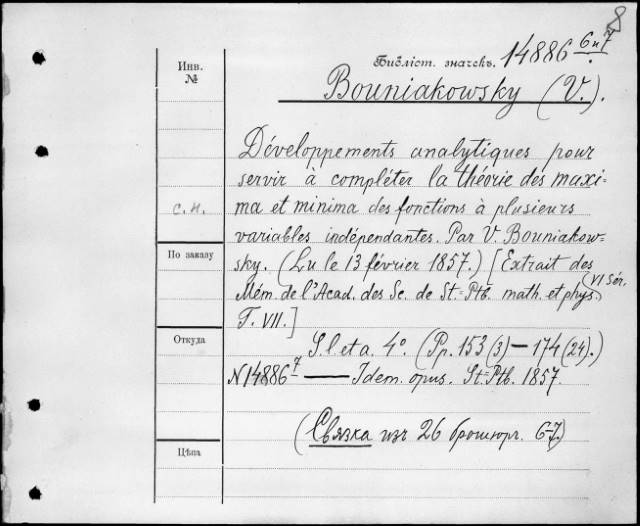 8
Библіст. значекъ. 14886 6 и 7
Инв.
№
Bouniakowsky (V.).
Développements analytiques pour
servir à compléter la théorie des maxi=
с.н.
ma et minima des fonctions à plusieurs
variables indépendantes. Par V. Bouniakow=
По заказу
sky. (Lu le 13 février 1857.) [Extrait des
Mém. de l'Acad. des Sc. de St=Ptb. math. et phys. (VI Sér.)
T. VII.]
Откуда
S. l. et a. 4°. (Pp. 153 (3) — 174 (24).)
N 14886 7 — Idem. opus. St=Ptb. 1857.
(Связка изъ 26 брошюръ. 6-7.)
Цѣна